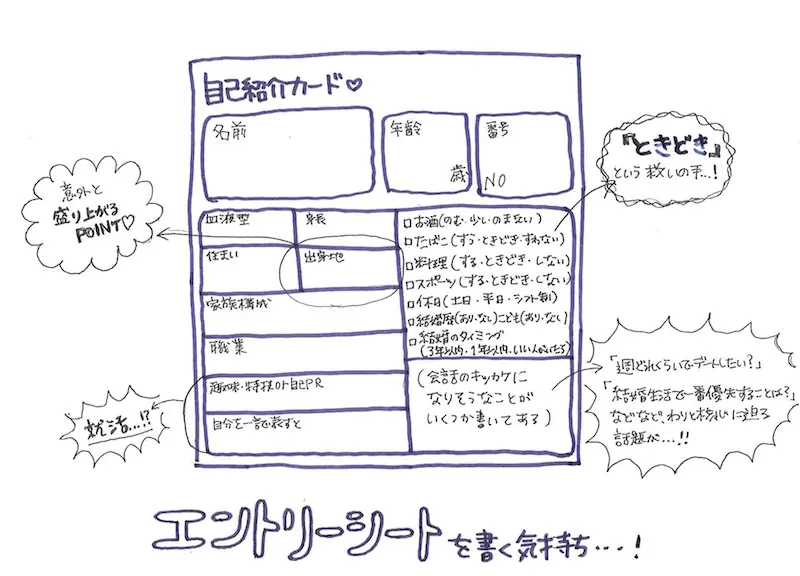 自己紹介カード♡
名前
年齢
歳
番号
NO
『ときどき』
という救いの手…!
意外と
盛り上がる
POINT♡
血液型
身長
住まい
出身地
家族構成
職業
趣味・特技 or 自己PR
自分を一言で表すと
□お酒(のむ・少し・のまない)
□たばこ(すう・ときどき・すわない)
□料理(する・ときどき・しない)
□スポーツ(する・ときどき・しない)
□休日(土日・平日・シフト制)
□結婚歴(あり・ない)こども(あり・ない)
□結婚のタイミング
(3年以内・1年以内・いい人がいたら)
(会話のキッカケに
なりそうなことが
いくつか書いてある)
「週どれくらいでデートしたい?」
「結婚生活で一番優先することは?」
などなど、わりと核心に迫る
話題が…!!
就活…!?
エントリーシートを書く気持ち…!